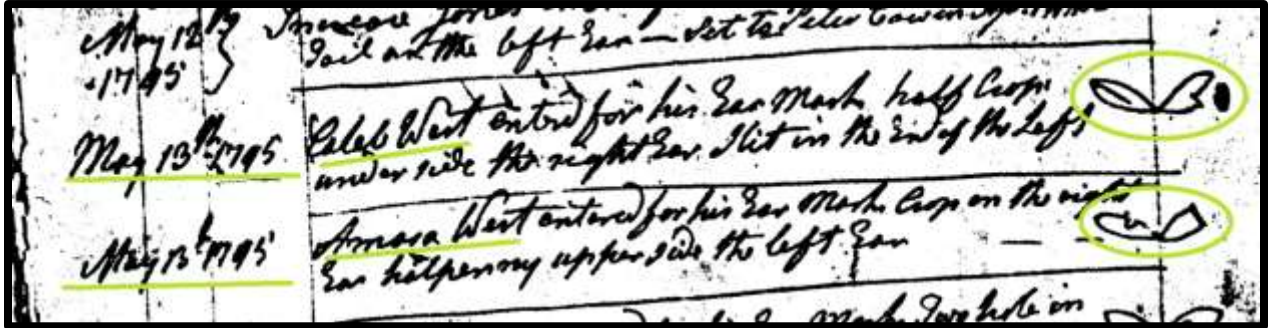 May 12th Increase Jones
1795 Tail on the left Ear — Set to Peter
May 13th 1795 Caleb West entred for his Ear Mark half Crop
under side the right Ear Slit in the End of the Left
May 13th 1795 Amasa West entered for his Ear Mark Crop on the right
Ear halpenny upper side the left Ear
Ear Mark Two hole in